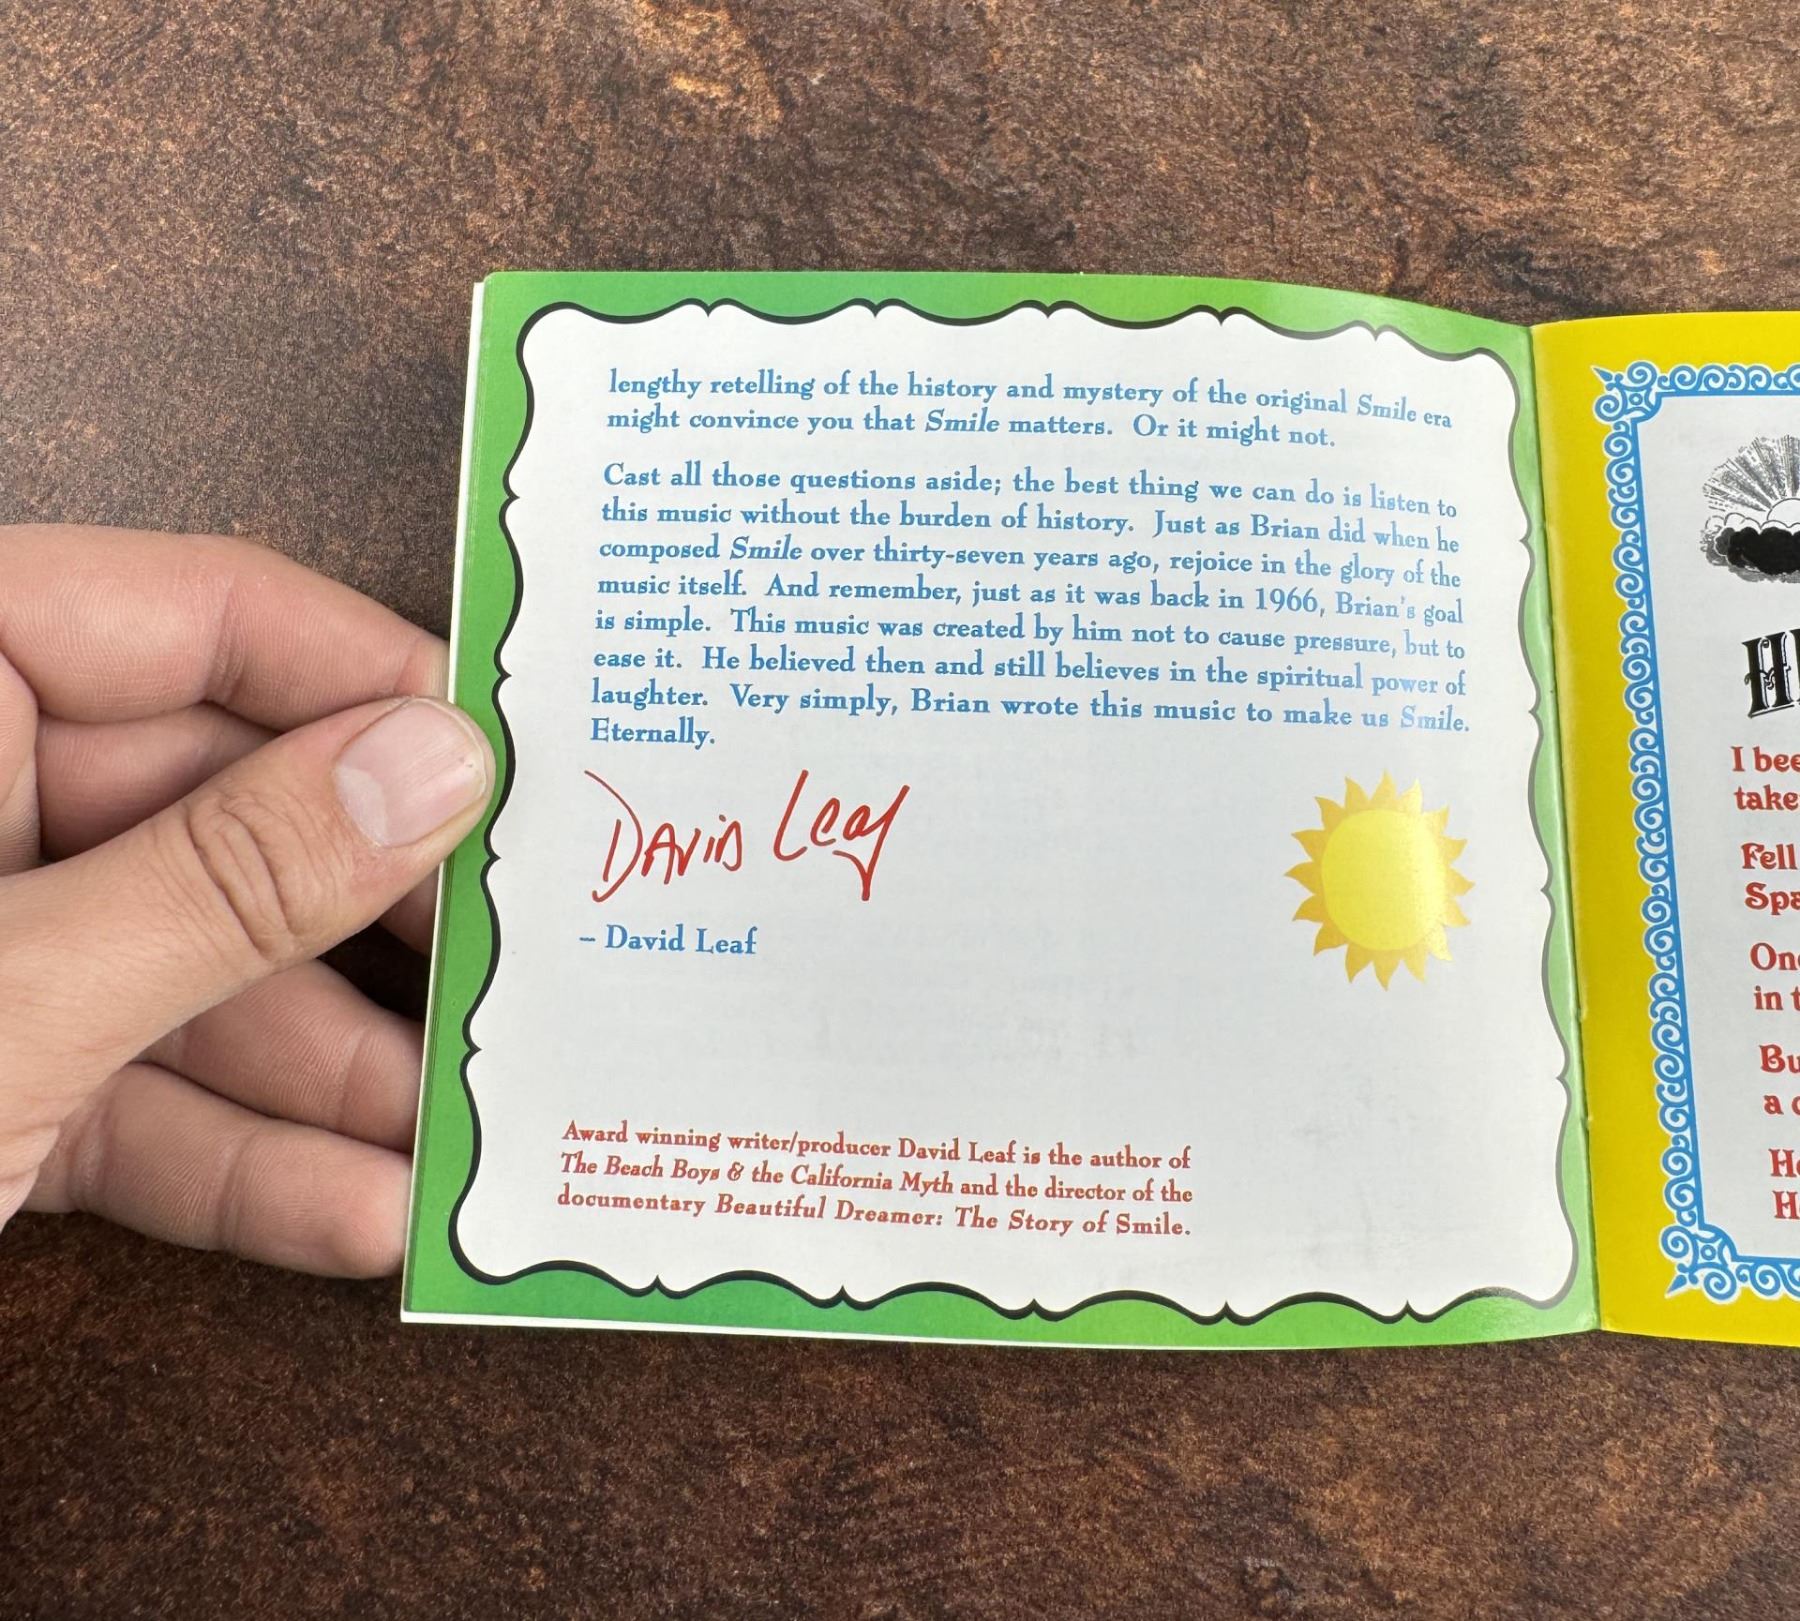 lengthy retelling of the history and mystery of the original Smile era
might convince you that Smile matters. Or it might not.
Cast all those questions aside; the best thing we can do is listen to
this music without the burden of history. Just as Brian did when he
composed Smile over thirty-seven years ago, rejoice in the glory of the
music itself. And remember, just as it was back in 1966, Brian's goal
is simple. This music was created by him not to cause pressure, but to
ease it. He believed then and still believes in the spiritual power of
laughter. Very simply, Brian wrote this music to make us Smile.
Eternally.
David Leaf
– David Leaf
Award winning writer/producer David Leaf is the author of
The Beach Boys & the California Myth and the director of the
documentary Beautiful Dreamer: The Story of Smile.
I
take
Fell
in
a